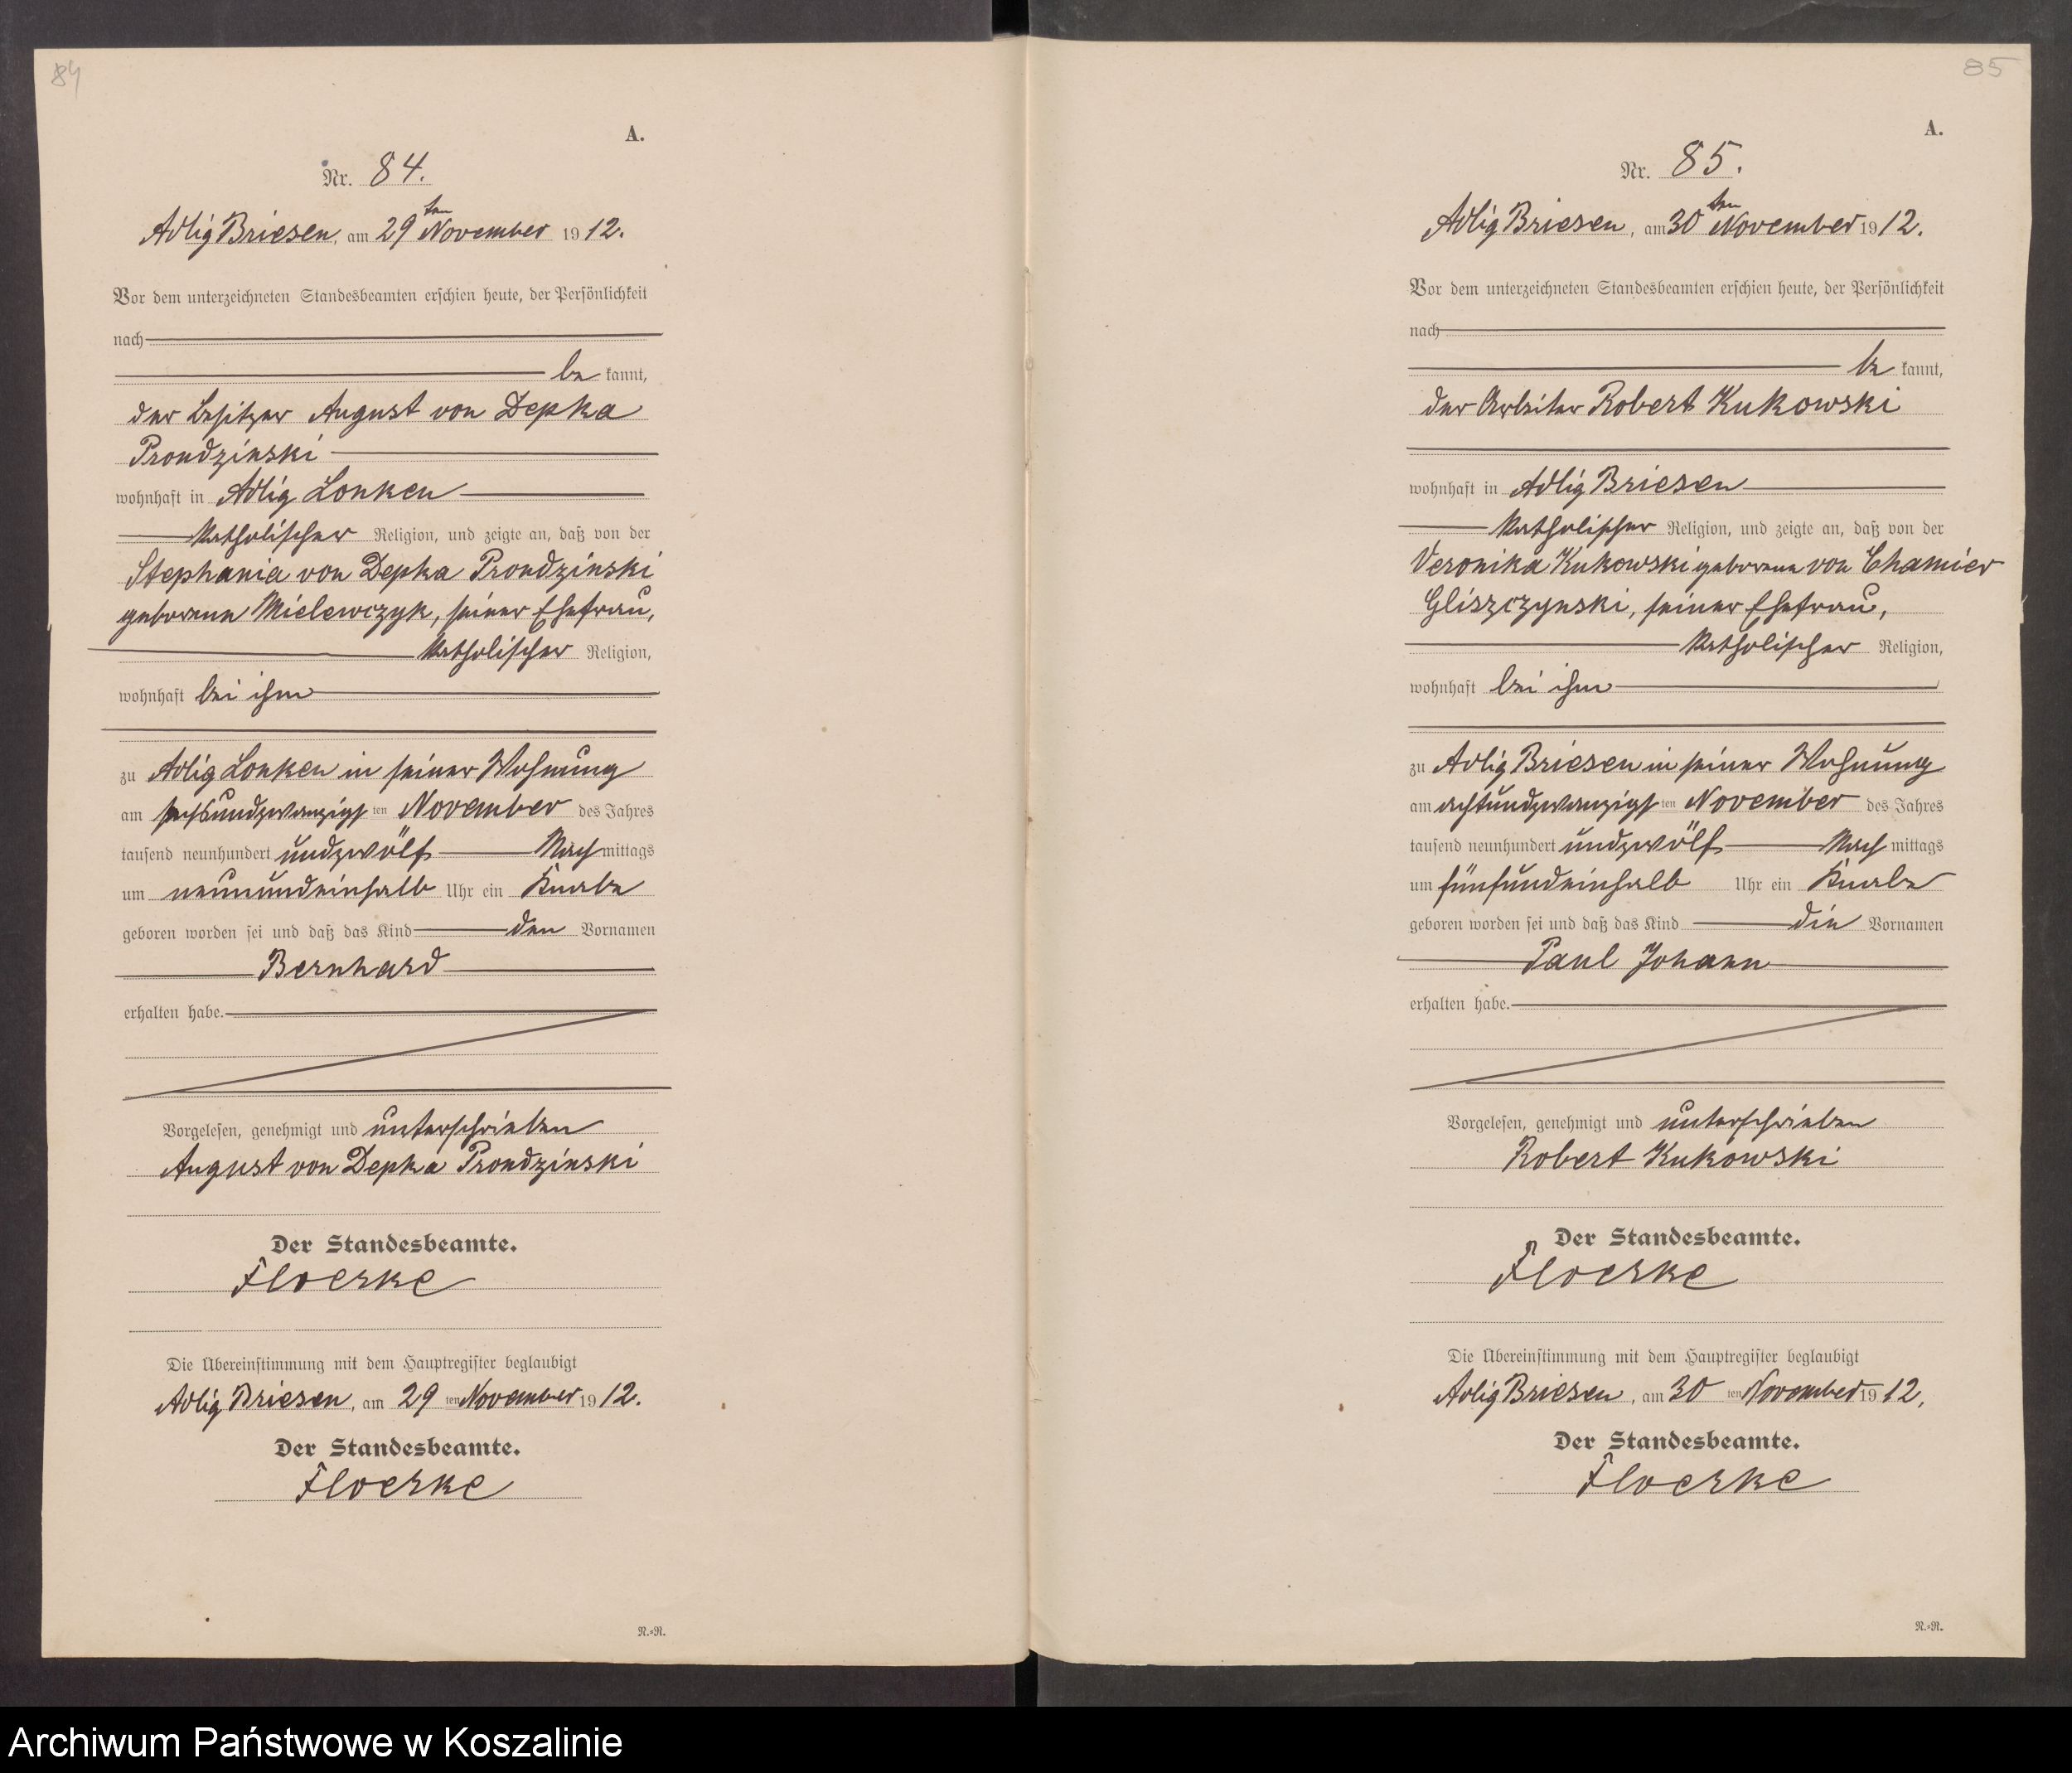 84
A.
Nr. 84.
Adlig Briesen, am 29ten November 1912.
Vor dem unterzeichneten Standesbeamten erschien heute, der Persönlichkeit
nach
be kannt,
der Besitzer August von Depka
Prondzinski
wohnhaft in Adlig Lonken
katholischer Religion, und zeigte an, daß von der
Stephania von Depka Prondzinski
geborene Mielewczyk, seiner Ehefrau,
katholischer Religion,
wohnhaft bei ihm
zu Adlig Lonken in seiner Wohnung
am sechsundzwanzigsten November des Jahres
tausend neunhundert undzwölf Nachmittags
um neunundeinhalb Uhr ein Knabe
geboren worden sei und daß das Kind den Vornamen
Bernhard
erhalten habe.
Vorgelesen, genehmigt und unterschrieben
August von Depka Prondzinski
Der Standesbeamte.
Floerke
Die Übereinstimmung mit dem Hauptregister beglaubigt
Adlig Briesen, am 29ten November 1912.
Der Standesbeamte.
Floerke
N.=N.
85
A.
Nr. 85.
Adlig Briesen, am 30ten November 1912.
Vor dem unterzeichneten Standesbeamten erschien heute, der Persönlichkeit
nach
be kannt,
der Arbeiter Robert Kukowski
wohnhaft in Adlig Briesen
katholischer Religion, und zeigte an, daß von der
Veronika Kukowski geborene von Chamier
Gliszczynski, seiner Ehefrau,
katholischer Religion,
wohnhaft bei ihm
zu Adlig Briesen in seiner Wohnung
am achtundzwanzigsten November des Jahres
tausend neunhundert undzwölf Nachmittags
um fünfundeinhalb Uhr ein Knabe
geboren worden sei und daß das Kind die Vornamen
Paul Johann
erhalten habe.
Vorgelesen, genehmigt und unterschrieben
Robert Kukowski
Der Standesbeamte.
Floerke
Die Übereinstimmung mit dem Hauptregister beglaubigt
Adlig Briesen, am 30ten November 1912.
Der Standesbeamte.
Floerke
N.=N.
Archiwum Państwowe w Koszalinie